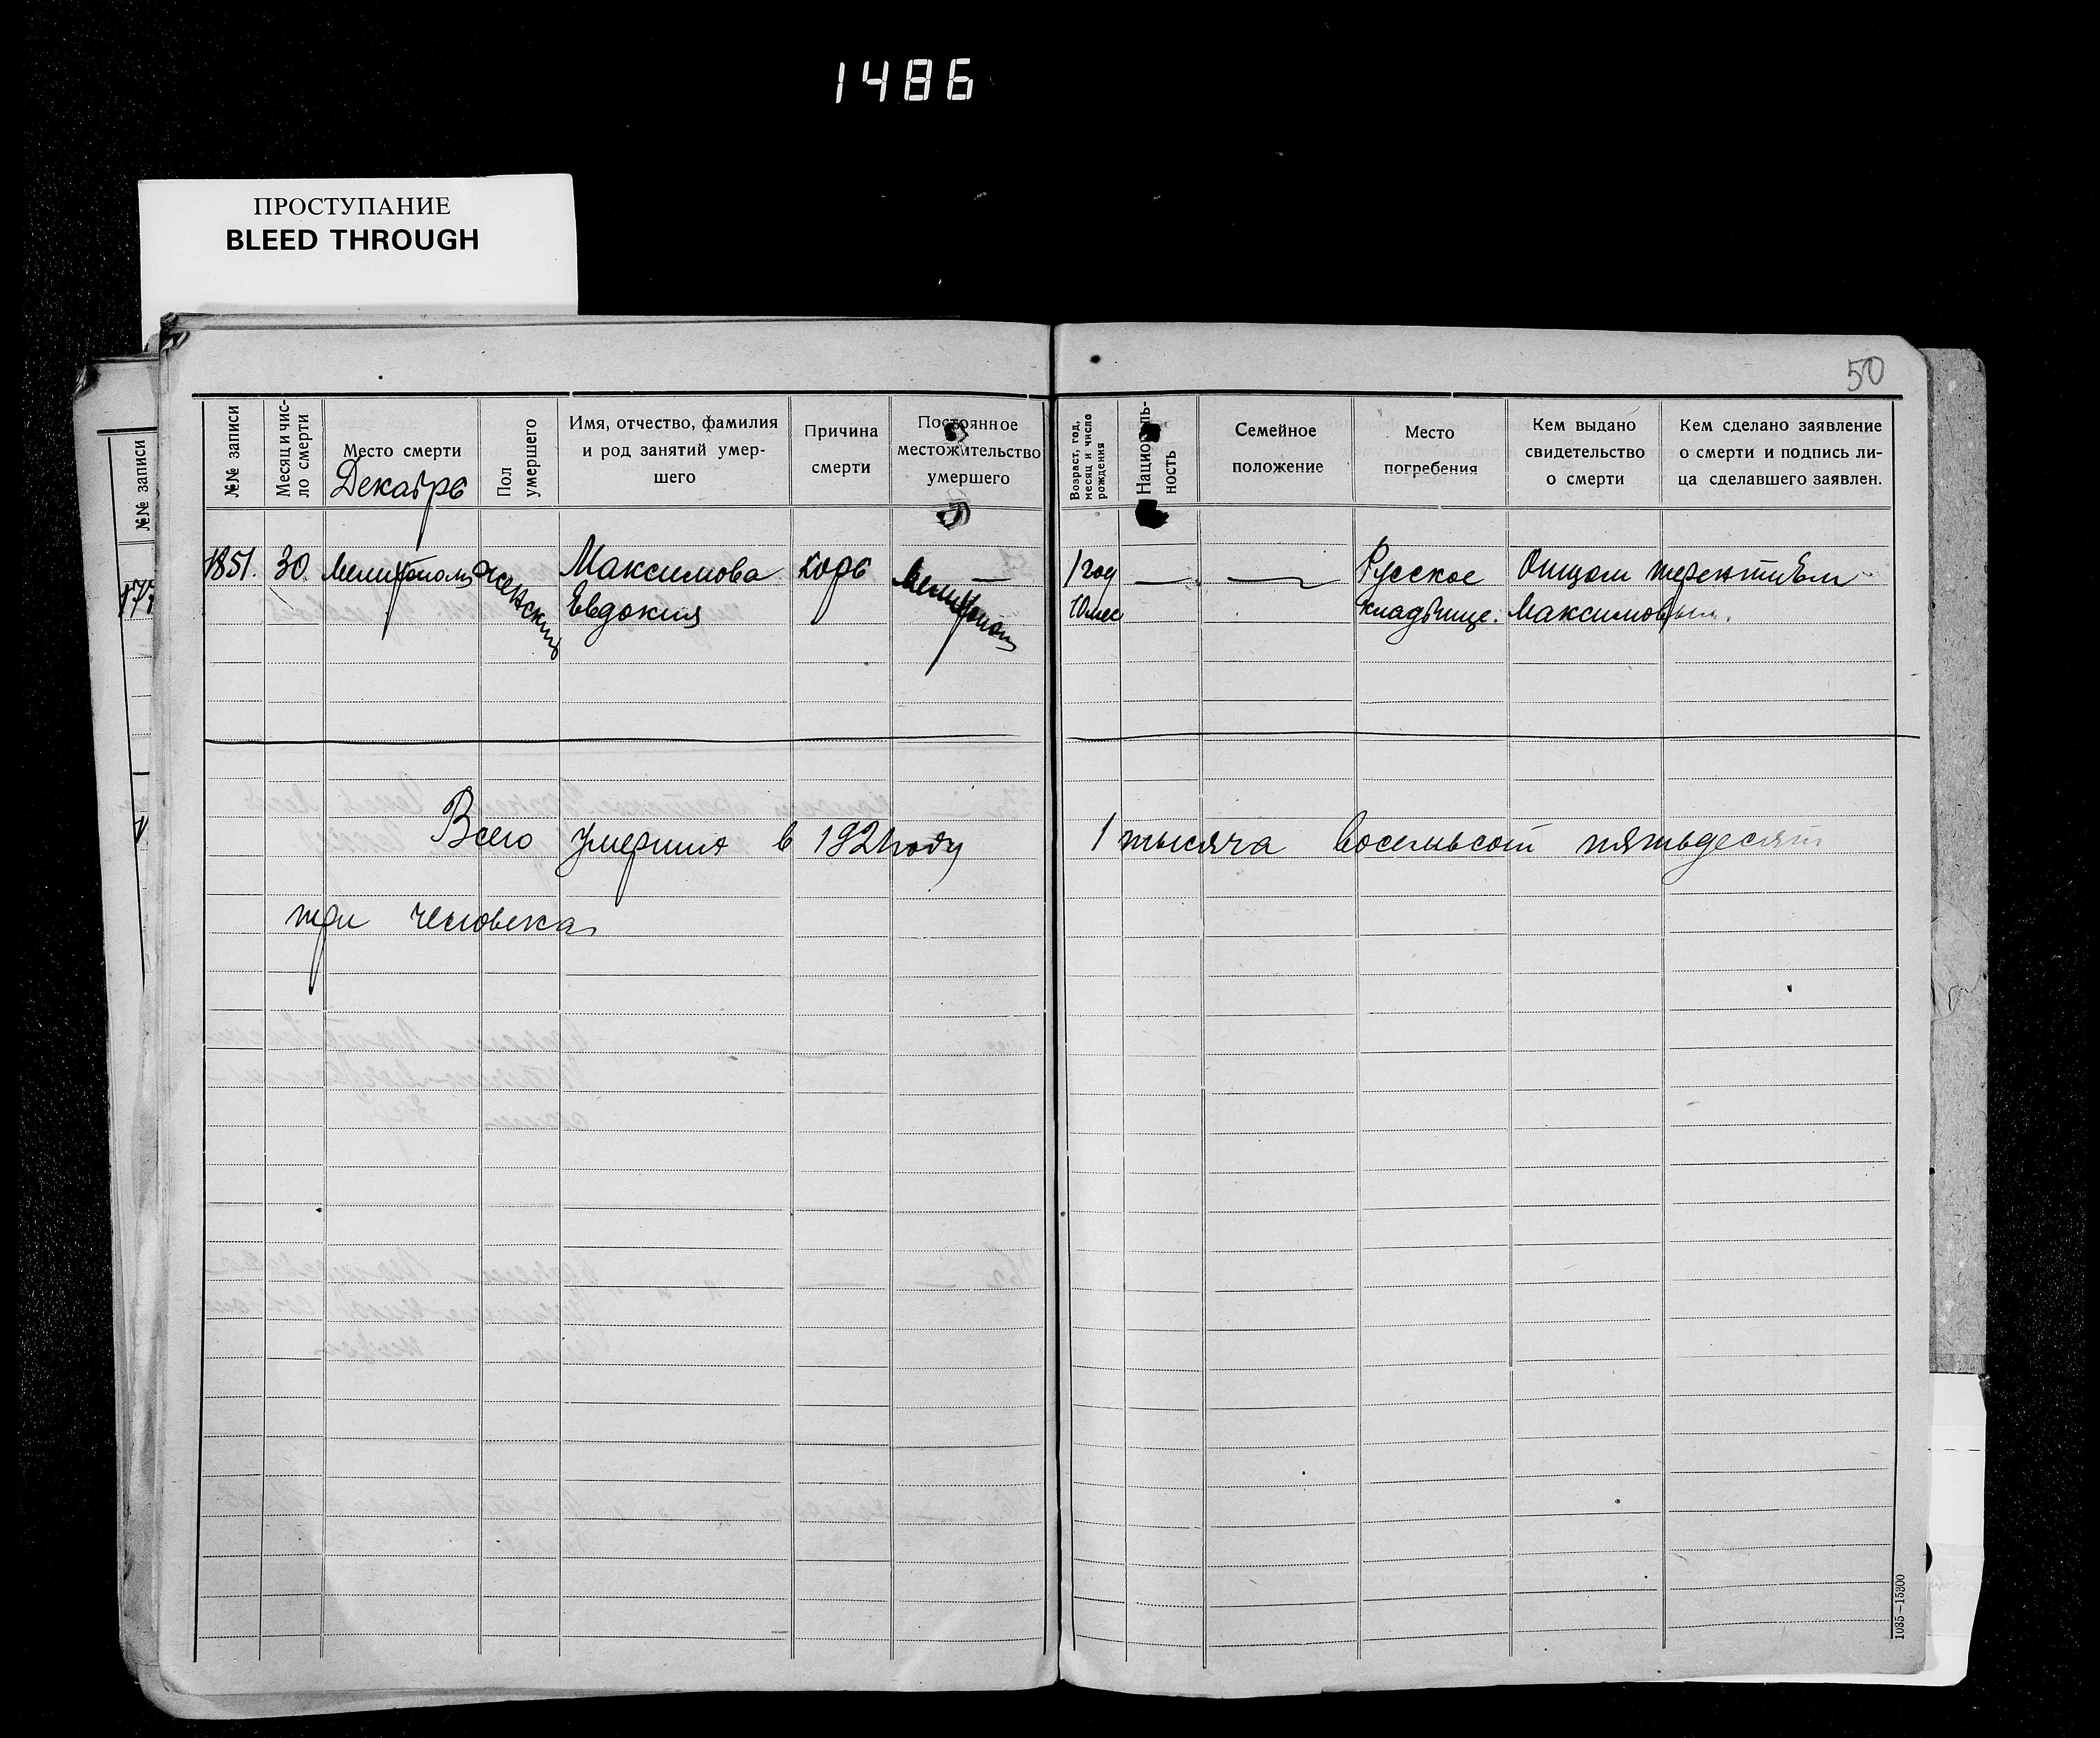 1486
ПРОСТУПАНИЕ
BLEED THROUGH
50
№№ записи
№№ записи
Месяц и чис-
ло смерти
Место смерти
Декабрь
Пол
умершего
Имя, отчество, фамилия
и род занятий умер-
шего
Причина
смерти
Постоянное
местожительство
умершего
Возраст, год,
месяц и число
рождения
Националь-
ность
Семейное
положение
Место
погребения
Кем выдано
свидетельство
о смерти
Кем сделано заявление
о смерти и подпись ли-
ца сделавшего заявлен.
1851. 30 Мелитополь женский Максимова корь Мелитополь 1 год — — Русское Отцом терентием
Евдокия 10 мес кладбище. Максимовым.
Всего умерших в 1921 году 1 тысяча восемьсот пятьдесят
три человека
1035—15300